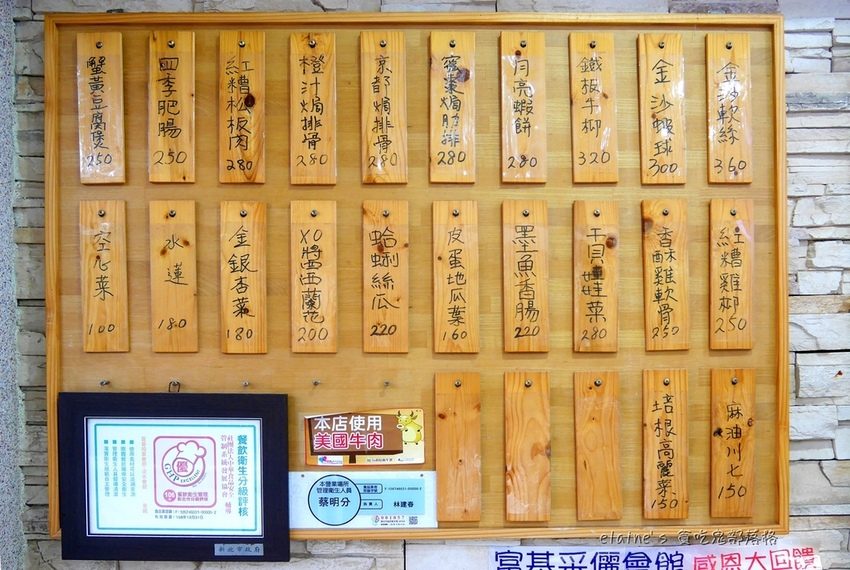 蟹黃豆腐煲 250
四季肥腸 250
紅糟松板肉 280
橙汁焗排骨 280
京都焗排骨 280
蜜棗焗肋排 280
月亮蝦餅 280
鐵板牛柳 320
金沙蝦球 300
金沙軟絲 360
空心菜 100
水蓮 180
金銀杏菜 180
XO醬西蘭花 200
蛤蜊絲瓜 220
皮蛋地瓜葉 160
墨魚香腸 220
干貝娃娃菜 280
香酥雞軟骨 250
紅糟雞柳 250
培根高麗菜 150
麻油川七 150
餐飲衛生分級評核
優
GHP
餐飲衛生管理
新北市政府
本店使用
美國牛肉
本營業場所
管理衛生人員
蔡明分
負責人
林建春
elaine's 貪吃鬼部落格
富基采儷會館 感恩大回饋